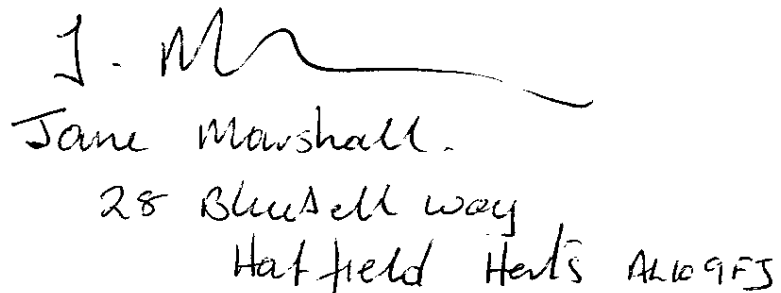 J. M
Jane Marshall.
28 Bluebell way
Hatfield Herts AL10 9FJ